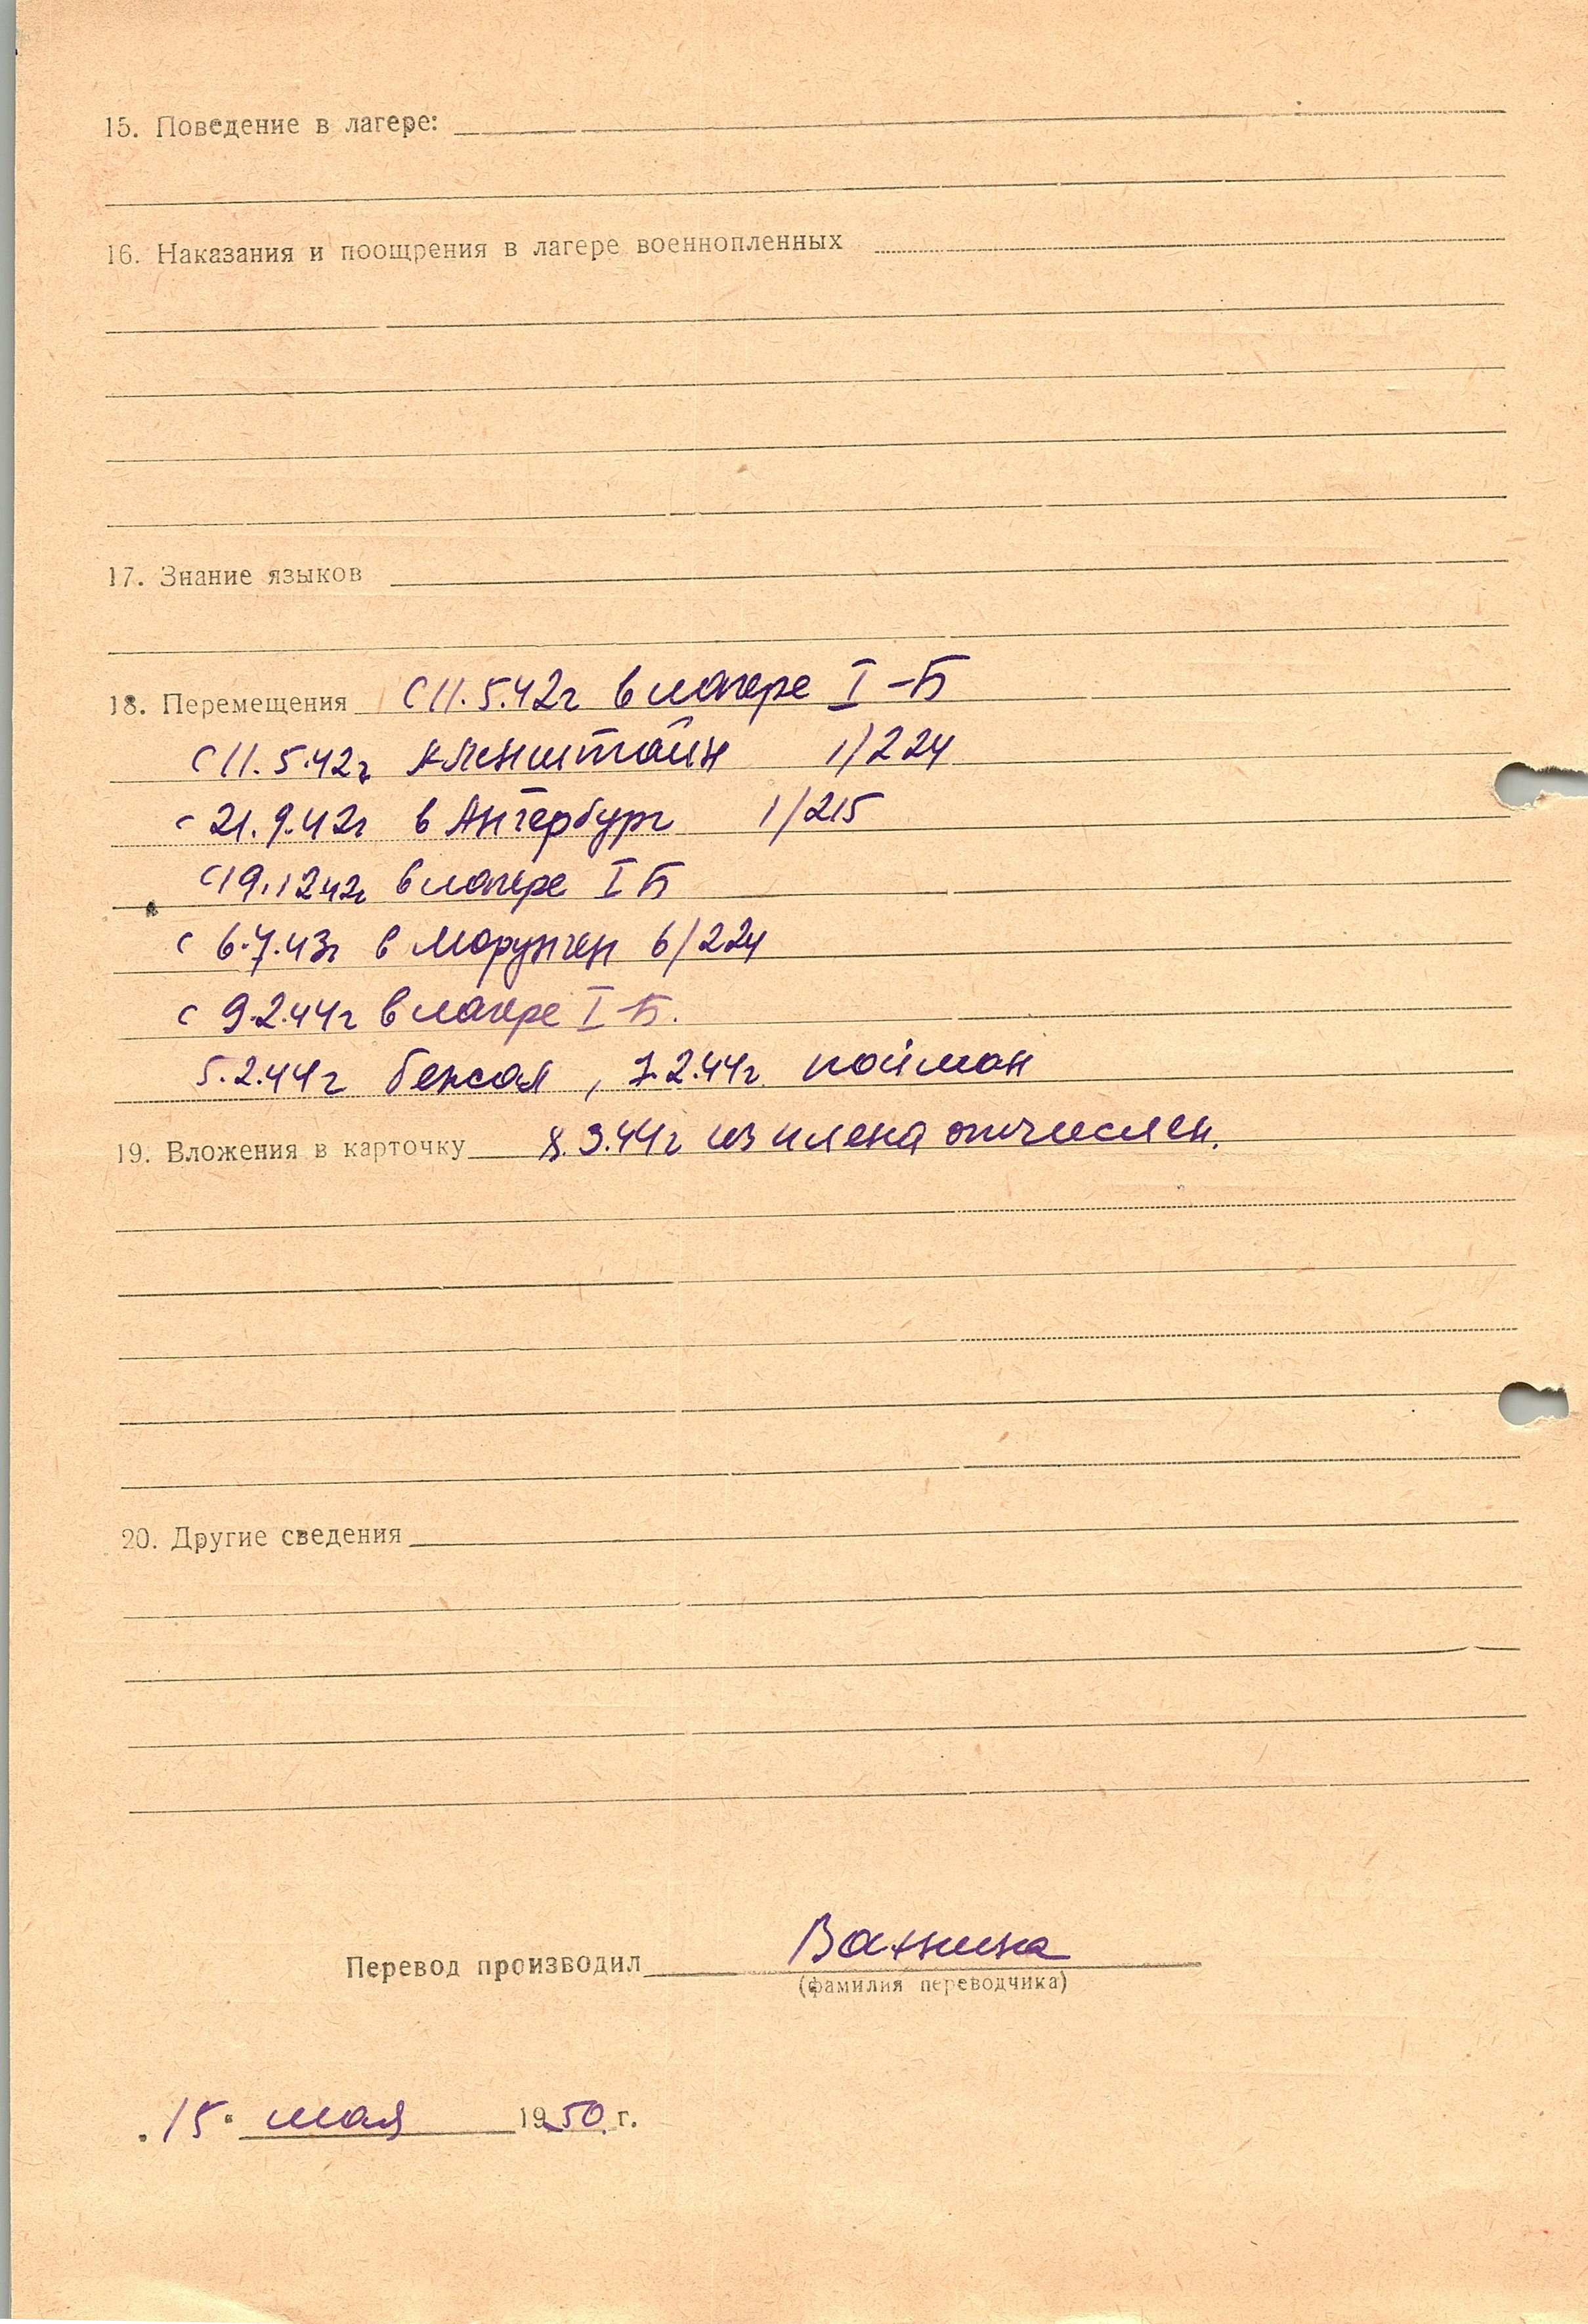 15. Поведение в лагере:
16. Наказания и поощрения в лагере военнопленных
17. Знание языков
18. Перемещения С 11.5.42г в лагере I-Б
С 11.5.42г 1/224
с 21.9.42г в Ангербург 1/215
С 19.12 42г в лагере I Б
с 6.7.43г в Морунген 6/224
с 9.2.44г в лагере I-Б.
5.2.44г бежал, 7.2.44г пойман
19. Вложения в карточку 8.3.44г из плена отчислен.
20. Другие сведения
Перевод производил Ванина
(фамилия переводчика)
"15" мая 1950 г.